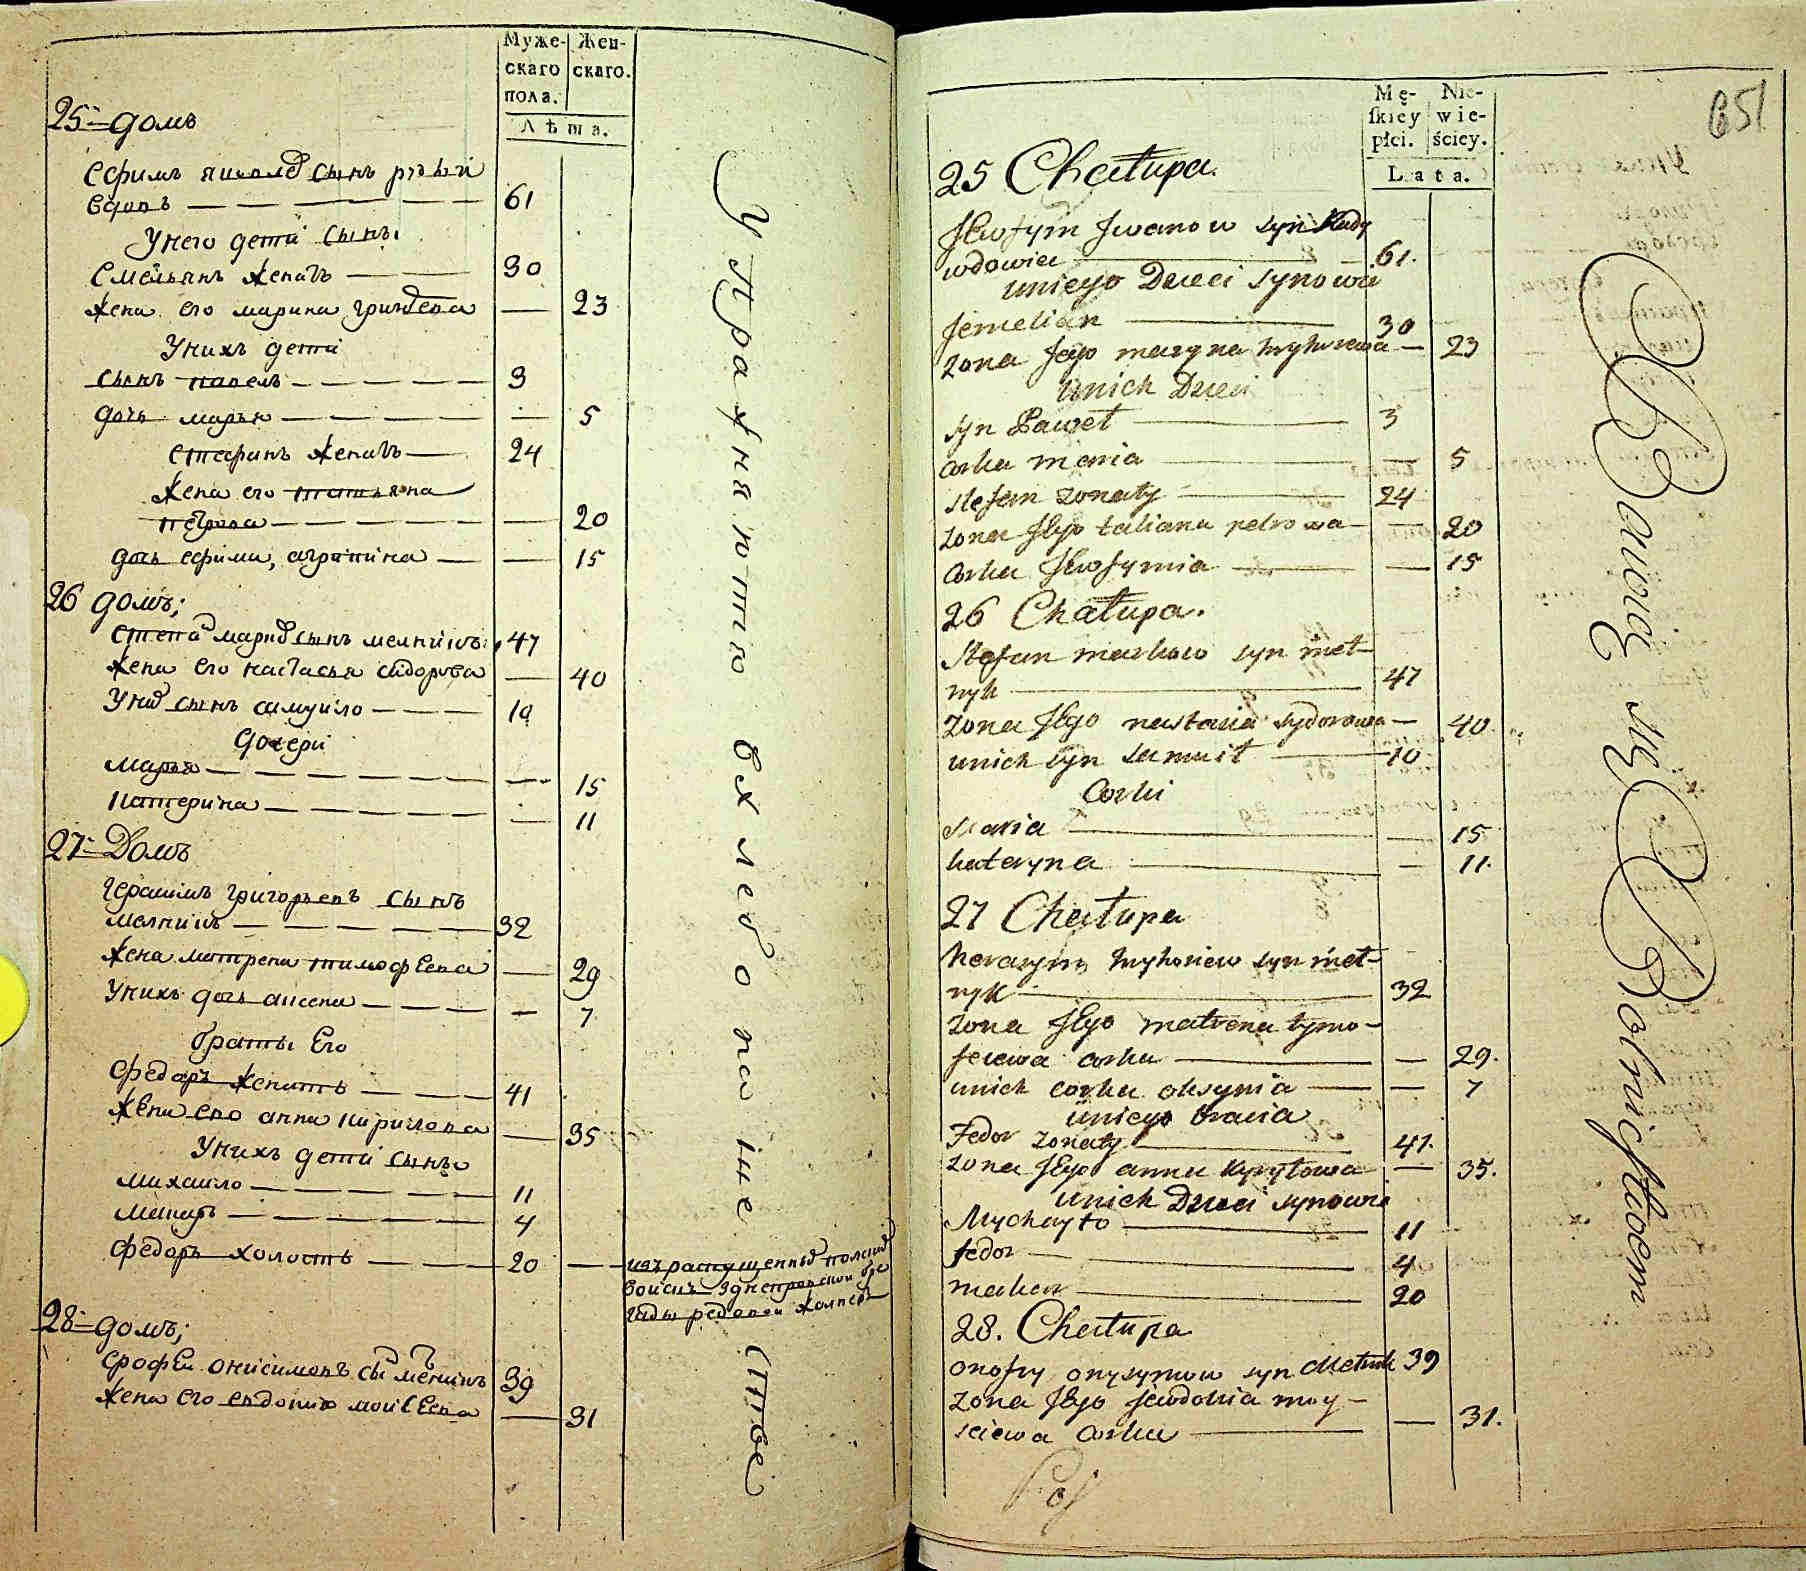 Муже-
скаго
пола.
Жен-
скаго.
Лѣта.
25 домъ
Ефимъ сынъ рудый
вдовъ 61
У него дети сынъ
Емельянъ женатъ 30
жена его марина 23
У нихъ дети
сынъ павелъ 3
дочь марья 5
стефанъ женатъ 24
жена его татьяна
петрова 20
дочь ефима, агрипина 15
26 домъ;
сынъ мелникъ 47
жена его настасья сидорова 40
сынъ самуйло 10
дочери
марья 15
катерина 11
27 домъ
герасимъ григорьевъ сынъ
мелникъ 32
жена матрена тимофеева 29
У нихъ дочь аксена 7
браты Его
федоръ женатъ 41
жена его анна кирилова 35
У нихъ дети сынъ
михайло 11
макаръ 4
федоръ холостъ 20
изъ распущенныхъ полскихъ
войскъ
28 домъ;
ерофей онисимовъ 39
жена его евдокия моисеева 31
Упражняются в хлебопашестве
651
Mę-
skiey
płci.
Nie-
wie-
ściey.
Lata.
25 Chałupa.
Jewfym Jwanow syn Rudy
wdowiec 61.
u niego Dzieci Synowie
Jemelian 30
zona Jego maryna hryhorewa 23
unich Dzieci
syn Paweł 3
corka maria 5
stefan zonaty 24
zona Jego tatiana petrowa 20
corka Jewfymia 15
26 Chałupa.
Stefan markow syn miel-
nyk 47
zona Jego nastasia sydorowa 40
unich syn samuił 10
Corki
Maria 15
kateryna 11.
27 Chałupa
herasym hryhoriew syn miel-
nyk 32
zona Jego matrena tymo-
feiewa corka 29.
unich corka oksynia 7
u niego bracia
Fedor zonaty 41.
zona Jego anna kyryłowa 35.
unich Dzieci synowie
Mychayło 11
fedor 4
makar 20
28. Chałupa
onofry onysymow syn Mielnik 39
zona Jego Jewdokia moy-
siewa corka 31.
Bawią się Rolnictwem